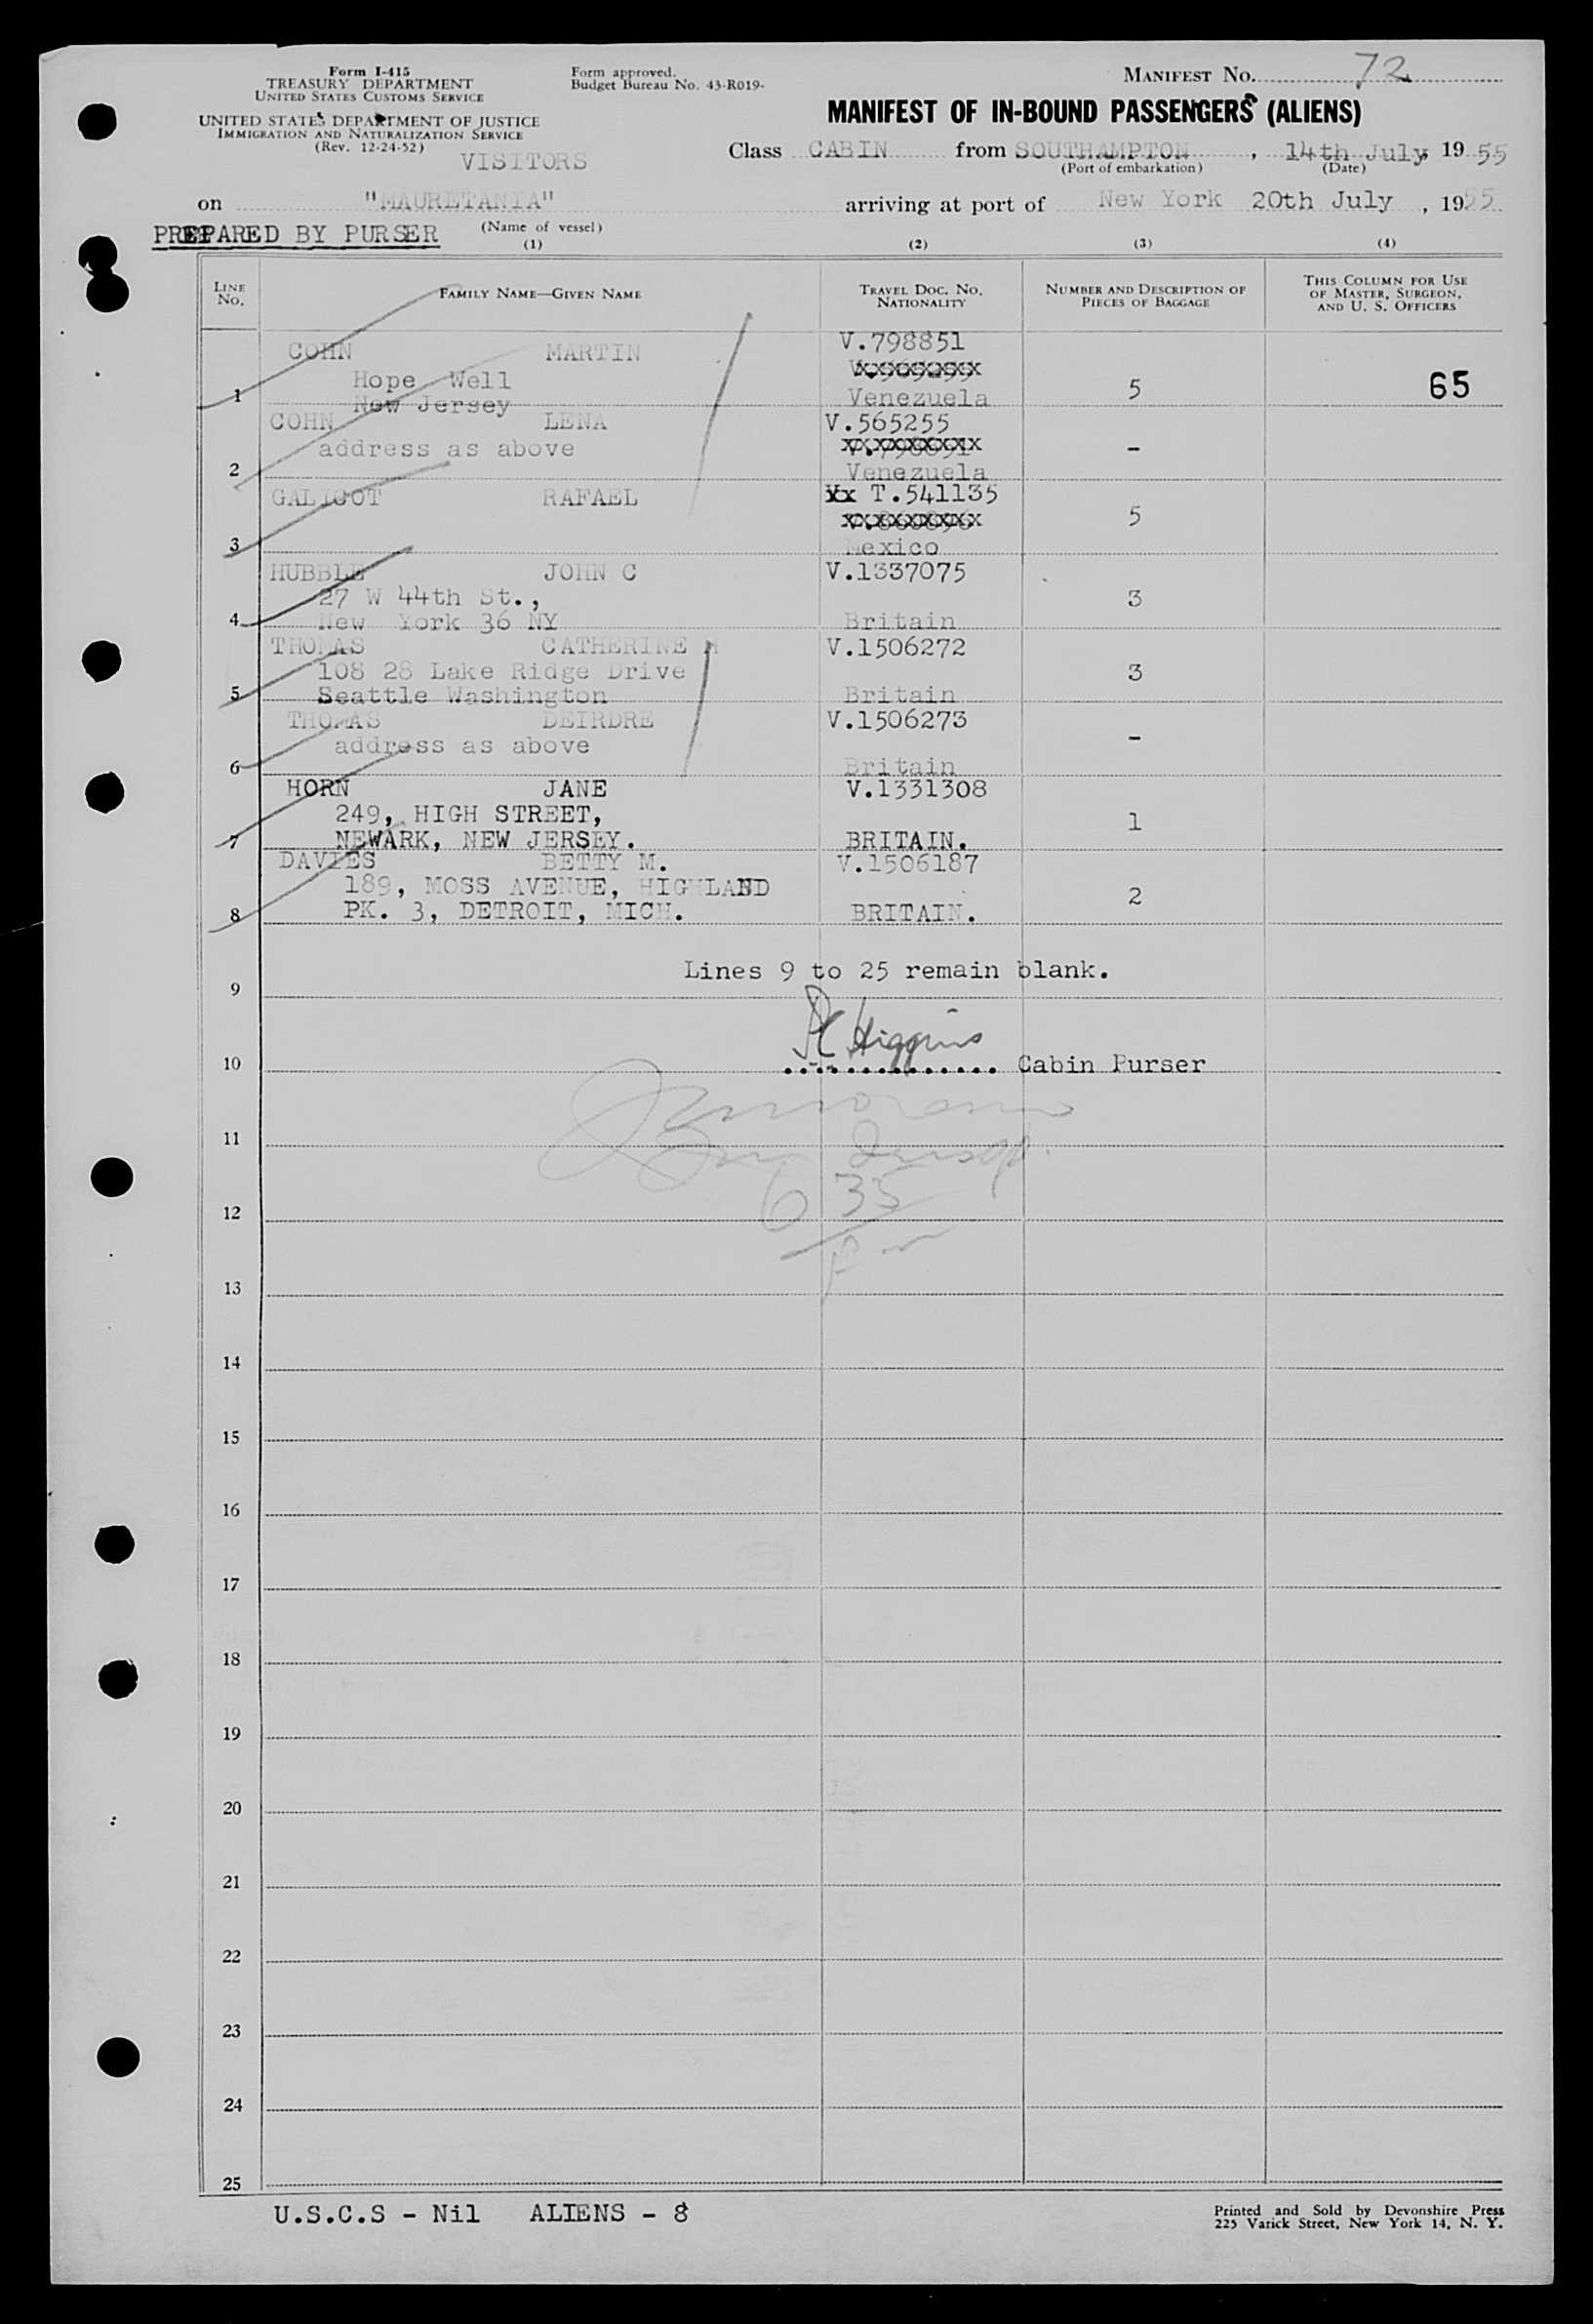 Form I-415
TREASURY DEPARTMENT
UNITED STATES CUSTOMS SERVICE
UNITED STATES DEPARTMENT OF JUSTICE
IMMIGRATION AND NATURALIZATION SERVICE
(Rev. 12-24-52)
VISITORS
Form approved.
Budget Bureau No. 43-R019-
MANIFEST NO. 72
MANIFEST OF IN-BOUND PASSENGERS (ALIENS)
Class CABIN from SOUTHAMPTON, 14th July, 19 55
(Port of embarkation) (Date)
on "MAURETANIA" arriving at port of New York 20th July, 1955
PREPARED BY PURSER (Name of vessel)
(1) (2) (3) (4)
LINE NO. FAMILY NAME—GIVEN NAME TRAVEL DOC. NO. NATIONALITY NUMBER AND DESCRIPTION OF PIECES OF BAGGAGE THIS COLUMN FOR USE OF MASTER, SURGEON, AND U. S. OFFICERS
COHN MARTIN V.798851
Hope Well
1 New Jersey Venezuela 5 65
COHN LENA V.565255
address as above -
2 Venezuela
GALIGOT RAFAEL T.541135
5
3 Mexico
HUBBLE JOHN C V.1337075
27 W 44th St., 3
4 New York 36 NY Britain
THOMAS CATHERINE M V.1506272
108 28 Lake Ridge Drive 3
5 Seattle Washington Britain
THOMAS DEIRDRE V.1506273
address as above -
6 Britain
HORN JANE V.1331308
249, HIGH STREET, 1
7 NEWARK, NEW JERSEY. BRITAIN.
DAVIES BETTY M. V.1506187
189, MOSS AVENUE, HIGHLAND 2
8 PK. 3, DETROIT, MICH. BRITAIN.
Lines 9 to 25 remain blank.
9
Higgins
10 Cabin Purser
11
12
6 35
13
14
15
16
17
18
19
20
21
22
23
24
25
U.S.C.S - Nil ALIENS - 8
Printed and Sold by Devonshire Press
225 Varick Street, New York 14, N. Y.